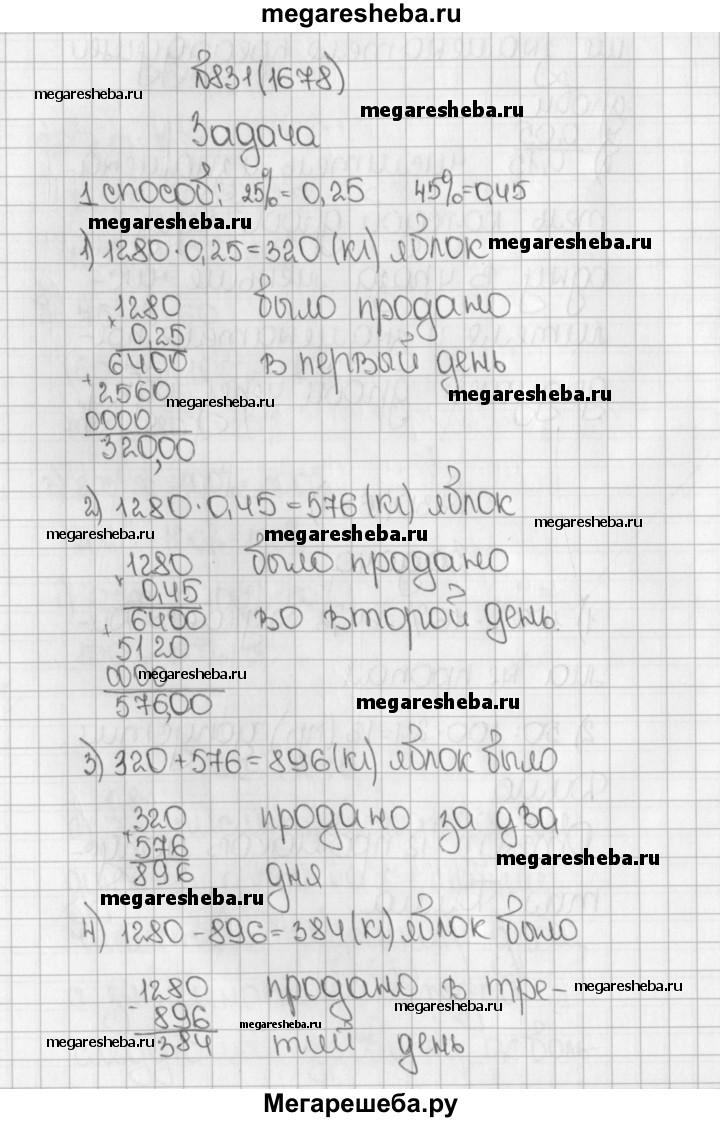 megaresheba.ru
№831(1678)
megaresheba.ru
megaresheba.ru
Задача
1 способ: 25%=0,25 45%=0,45
megaresheba.ru
1) 1280·0,25=320 (кг) яблок
megaresheba.ru
1280 было продано
× 0,25
6400 в первый день
+ 2560
megaresheba.ru
megaresheba.ru
0000
320,00
2) 1280·0,45=576 (кг) яблок
megaresheba.ru
megaresheba.ru
megaresheba.ru
1280 было продано
× 0,45
6400 во второй день.
+ 5120
0000
megaresheba.ru
576,00
megaresheba.ru
3) 320+576=896(кг) яблок было
320 продано за два
+ 576
896 дня
megaresheba.ru
megaresheba.ru
4) 1280-896=384(кг) яблок было
1280 продано в тре-
megaresheba.ru
megaresheba.ru
- 896
megaresheba.ru
384 тий день
megaresheba.ru
megaresheba.ru
Мегарешеба.ру